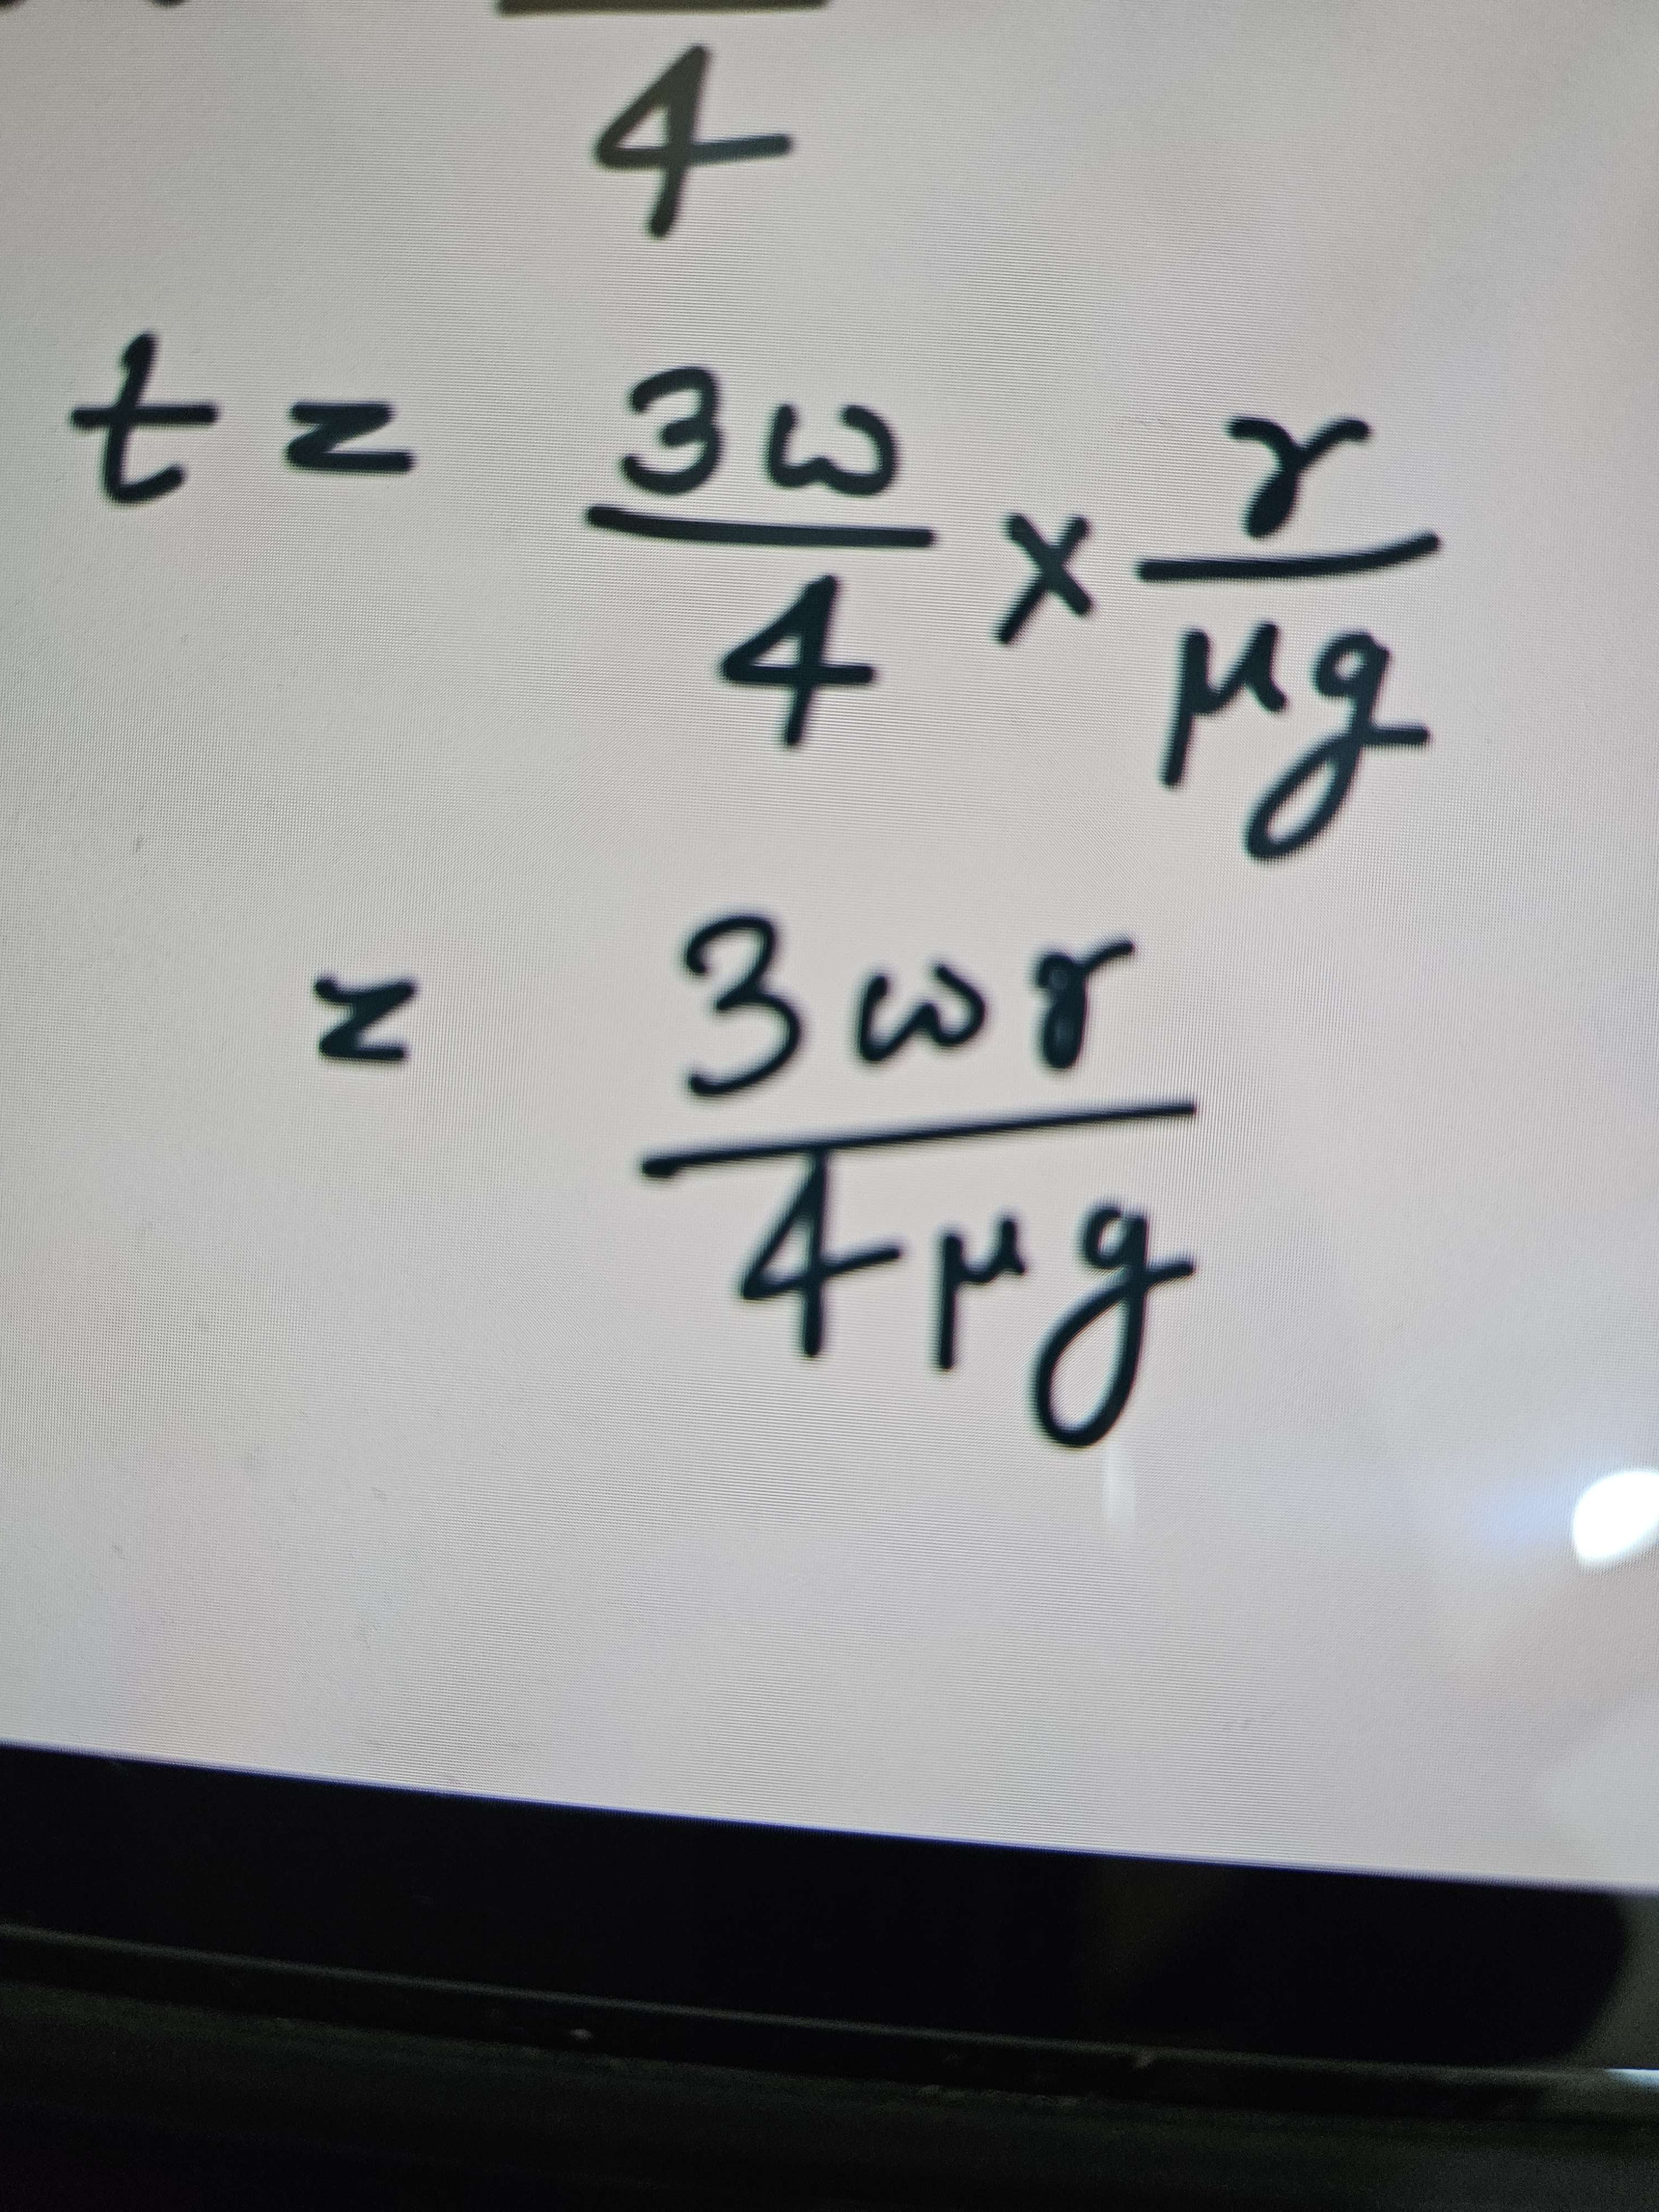 4
t = 3ω/4 × r/μg
= 3ωr/4μg